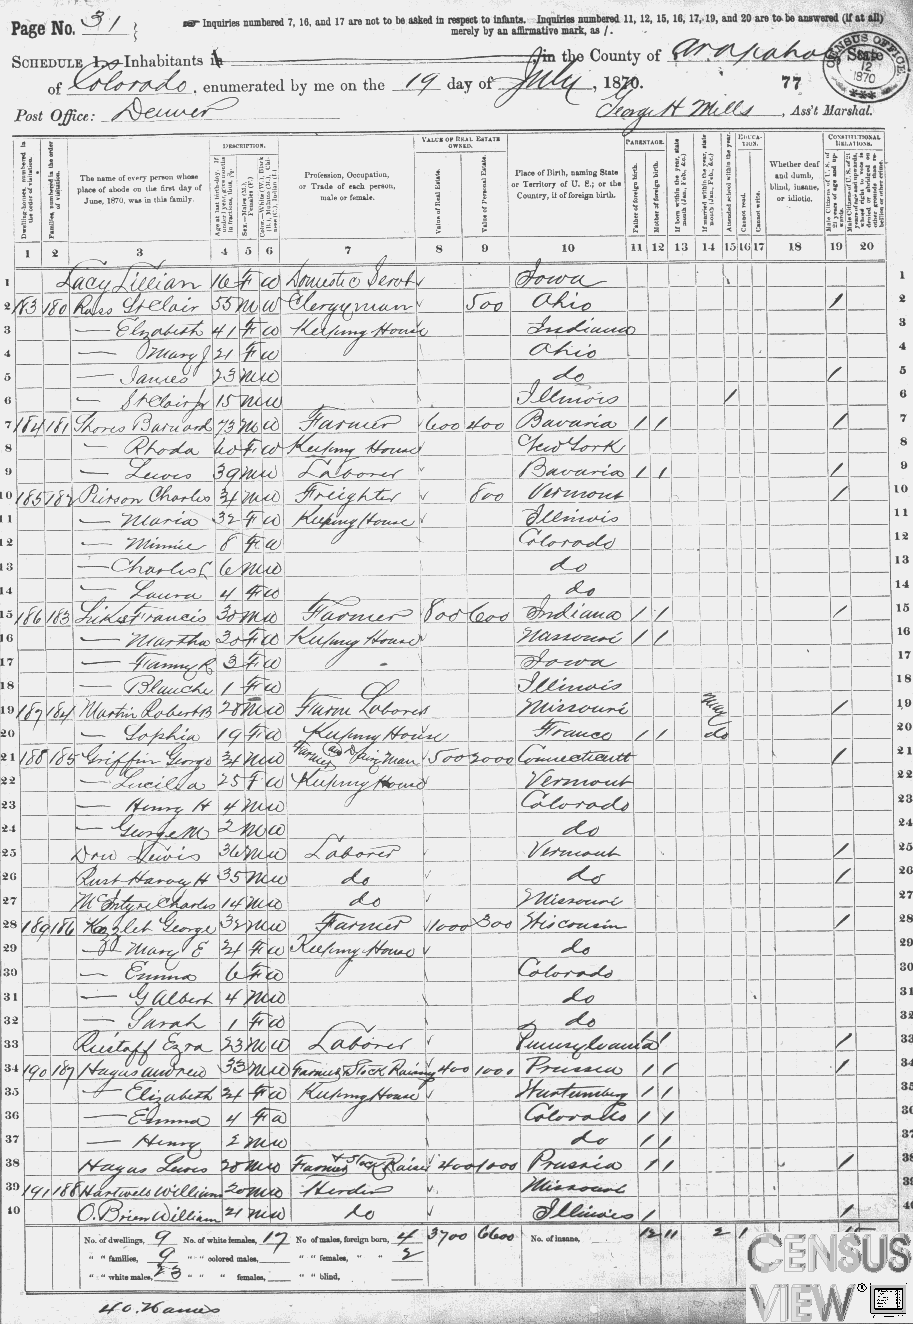 Page No. 31
Inquiries numbered 7, 16, and 17 are not to be asked in respect to infants. Inquiries numbered 11, 12, 15, 16, 17, 19, and 20 are to be answered (if at all)
merely by an affirmative mark, as /.
SCHEDULE 1.—Inhabitants in , in the County of Arapahoe, State
of Colorado, enumerated by me on the 19 day of July, 1870. 77
CENSUS OFFICE 12 1870
Post Office: Denver George H Mills, Ass't Marshal.
DESCRIPTION. VALUE OF REAL ESTATE OWNED. PARENTAGE. EDUCATION. CONSTITUTIONAL RELATIONS.
Dwelling-houses, numbered in the order of visitation.
Families, numbered in the order of visitation.
The name of every person whose place of abode on the first day of June, 1870, was in this family.
Profession, Occupation, or Trade of each person, male or female.
Value of Real Estate.
Value of Personal Estate.
Place of Birth, naming State or Territory of U. S.; or the Country, if of foreign birth.
Father of foreign birth.
Mother of foreign birth.
Attended school within the year.
Cannot read.
Cannot write.
Whether deaf and dumb, blind, insane, or idiotic.
1 2 3 4 5 6 7 8 9 10 11 12 13 14 15 16 17 18 19 20
1 Lacy Lillian 16 F W Domestic Servt Iowa 1
2 183 180 Ross St Clair 55 M W Clergyman 500 Ohio / 2
3 — Elizabeth 41 F W Keeping House Indiana 3
4 — Mary J 21 F W Ohio 4
5 — James 23 M W do / 5
6 — St Clair Jr 15 M W Illinois / 6
7 184 181 Shores Barnard 73 M W Farmer 600 400 Bavaria / / / 7
8 — Rhoda 60 F W Keeping House New York 8
9 — Lewis 39 M W Laborer Bavaria / / / 9
10 185 182 Pierson Charles 34 M W Freighter 800 Vermont / 10
11 — Maria 32 F W Keeping House Illinois 11
12 — Minnie 8 F W Colorado 12
13 — Charles L 6 M W do 13
14 — Laura 4 F W do 14
15 186 183 Francis 30 M W Farmer 800 600 Indiana / / / 15
16 — Martha 30 F W Keeping House Missouri / / 16
17 — Fanny R 3 F W Iowa 17
18 — Blanche 1 F W Illinois 18
19 187 184 Martin Robert B 28 M W Farm Laborer Missouri May / 19
20 — Sophia 19 F W Keeping House France / / do 20
21 188 185 Griffin George 34 M W Farmer and 1500 2000 Connecticutt / 21
22 — Lucilla 25 F W Keeping House Vermont 22
23 — Henry H 4 M W Colorado 23
24 — George M 2 M W do 24
25 Dow Lewis 36 M W Laborer Vermont / 25
26 Rust Harvey H 35 M W do do / 26
27 McIntyre Charles 14 M W do Missouri 27
28 189 186 George 32 M W Farmer 1000 300 Wisconsin / 28
29 — Mary E 24 F W Keeping House do 29
30 — Emma 6 F W Colorado 30
31 — G Albert 4 M W do 31
32 — Sarah 1 F W do 32
33 Ristoff Ezra 23 M W Laborer Pennsylvania / / 33
34 190 187 Hagus Andrew 33 M W Farmer & Stock Raising 400 1000 Prussia / / / 34
35 — Elizabeth 24 F W Keeping House Wurtemberg / / 35
36 — Emma 4 F W Colorado / / 36
37 — Henry 2 M W do / / 37
38 Hagus Lewis 28 M W Farmer & Stock Raiser 400 1000 Prussia / / / 38
39 191 188 Hartwels William 20 M W Herder Missouri 39
40 O.Brien William 21 M W do Illinois / / 40
No. of dwellings, 9 No. of white females, 17 No. of males, foreign born, 4 3700 6600 No. of insane, 12 11 2 1 15
" " families, 9 " " colored males, " " females, " " 2
" " white males, 23 " " " females, " " blind,
40. Names
CENSUS
VIEW®